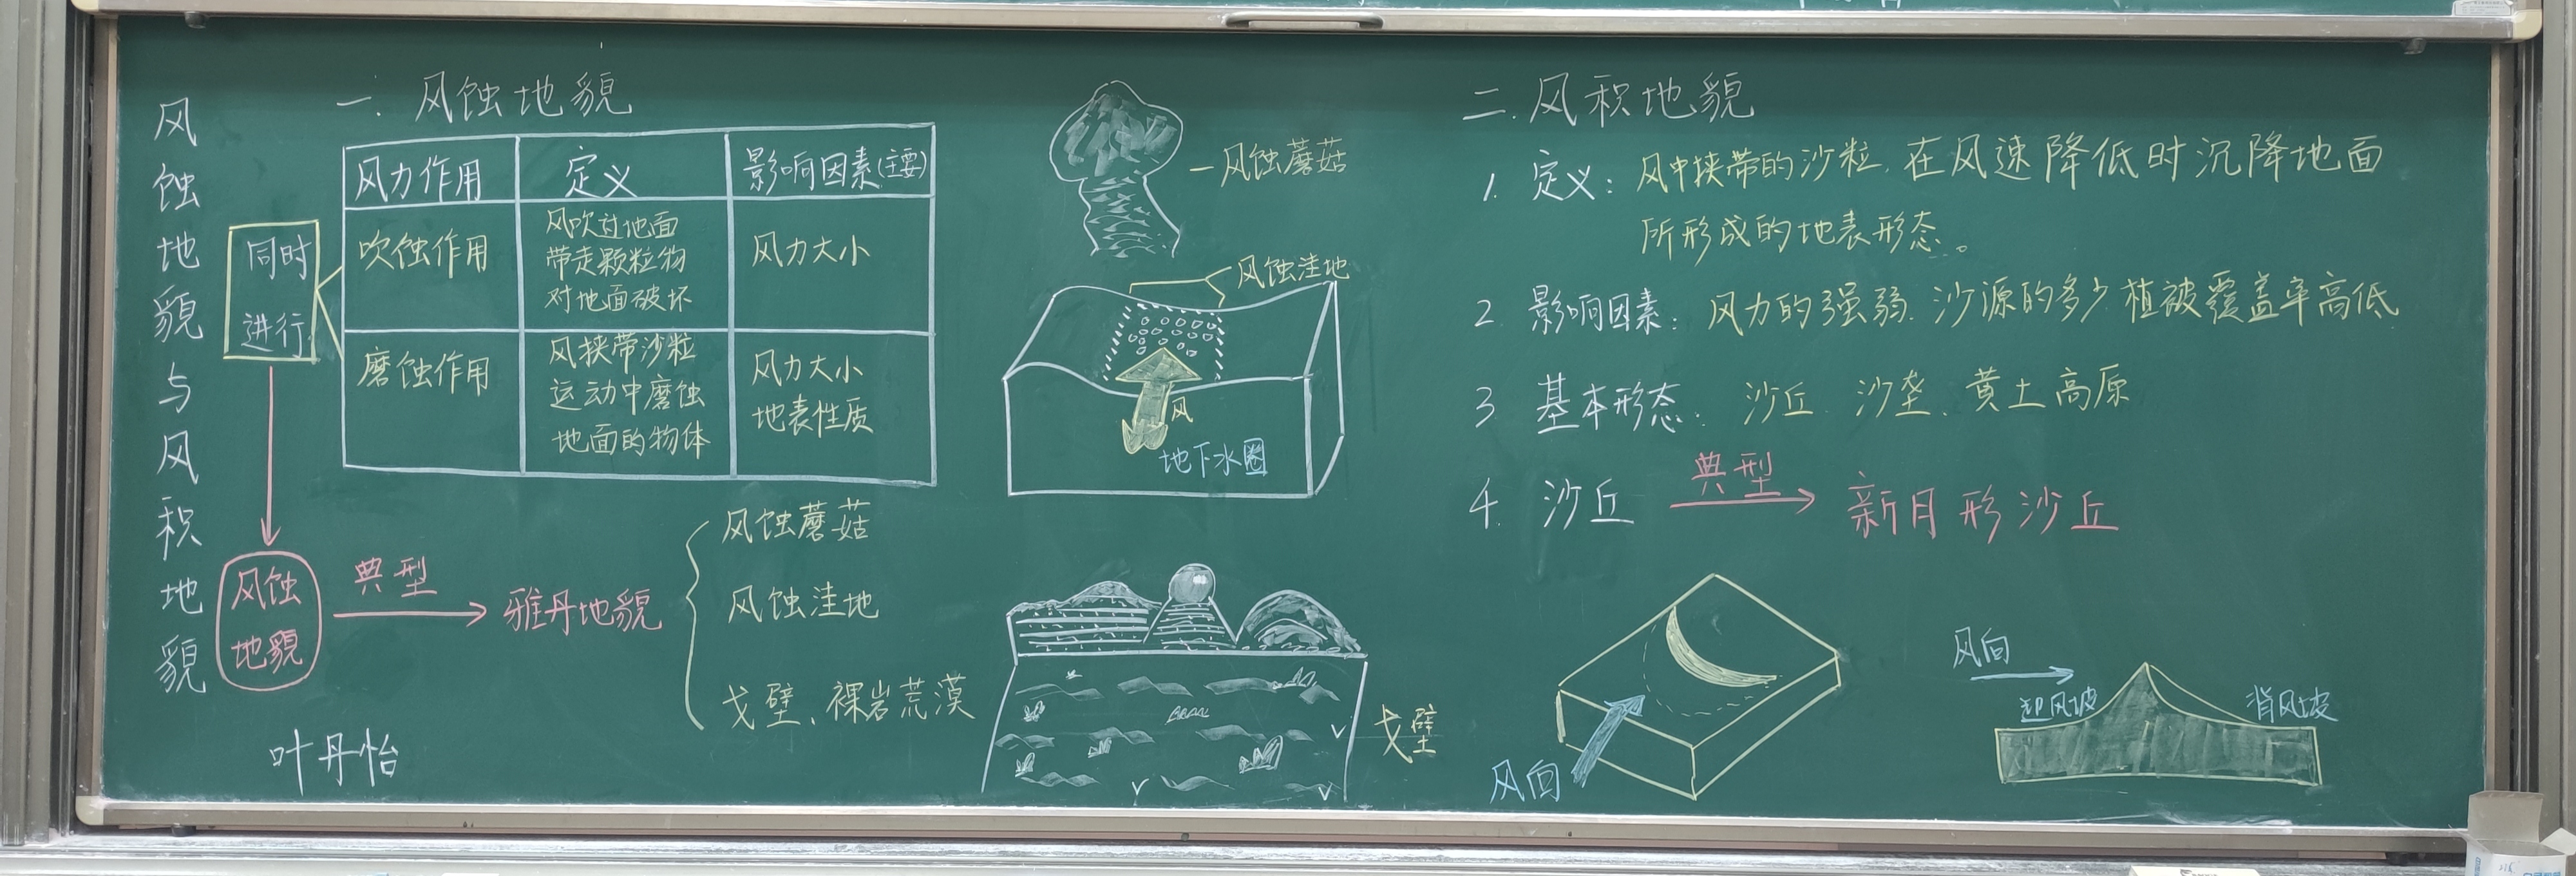 风蚀地貌与风积地貌
一. 风蚀地貌
风力作用 定义 影响因素(主要)
同时
进行
吹蚀作用
风吹过地面
带走颗粒物
对地面破坏
风力大小
磨蚀作用
风挟带沙粒
运动中磨蚀
地面的物体
风力大小
地表性质
风蚀
地貌
典型
雅丹地貌
风蚀蘑菇
风蚀洼地
戈壁、裸岩荒漠
叶丹怡
风蚀蘑菇
风蚀洼地
风
地下水圈
戈壁
二. 风积地貌
1. 定义: 风中挟带的沙粒,在风速降低时沉降地面
所形成的地表形态。
2 影响因素: 风力的强弱、沙源的多少 植被覆盖率高低
3 基本形态: 沙丘、沙垄、黄土高原
4. 沙丘 典型 新月形沙丘
风向
风向
迎风坡
背风坡